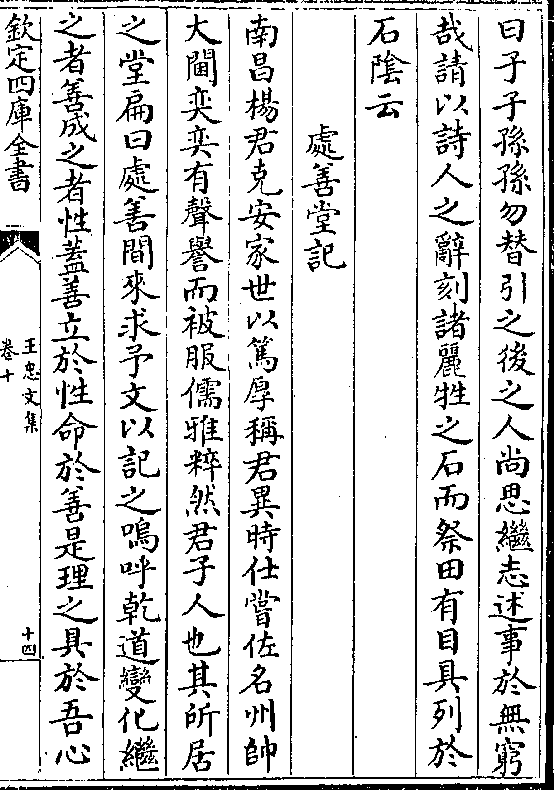 曰子子孫孫勿替引之後之人尚思繼志述事於無窮
哉請以詩人之辭刻諸麗牲之石而祭田有目具列於
石陰云
處善堂記
南昌楊君克安家世以篤厚稱君異時仕嘗佐名州帥
大閫奕奕有聲譽而被服儒雅粹然君子人也其所居
之堂扁曰處善間來求予文以記之嗚呼乾道變化繼
之者善成之者性蓋善立於性命於善是理之具於吾心
欽定四庫全書
王忠文集
卷十
十四